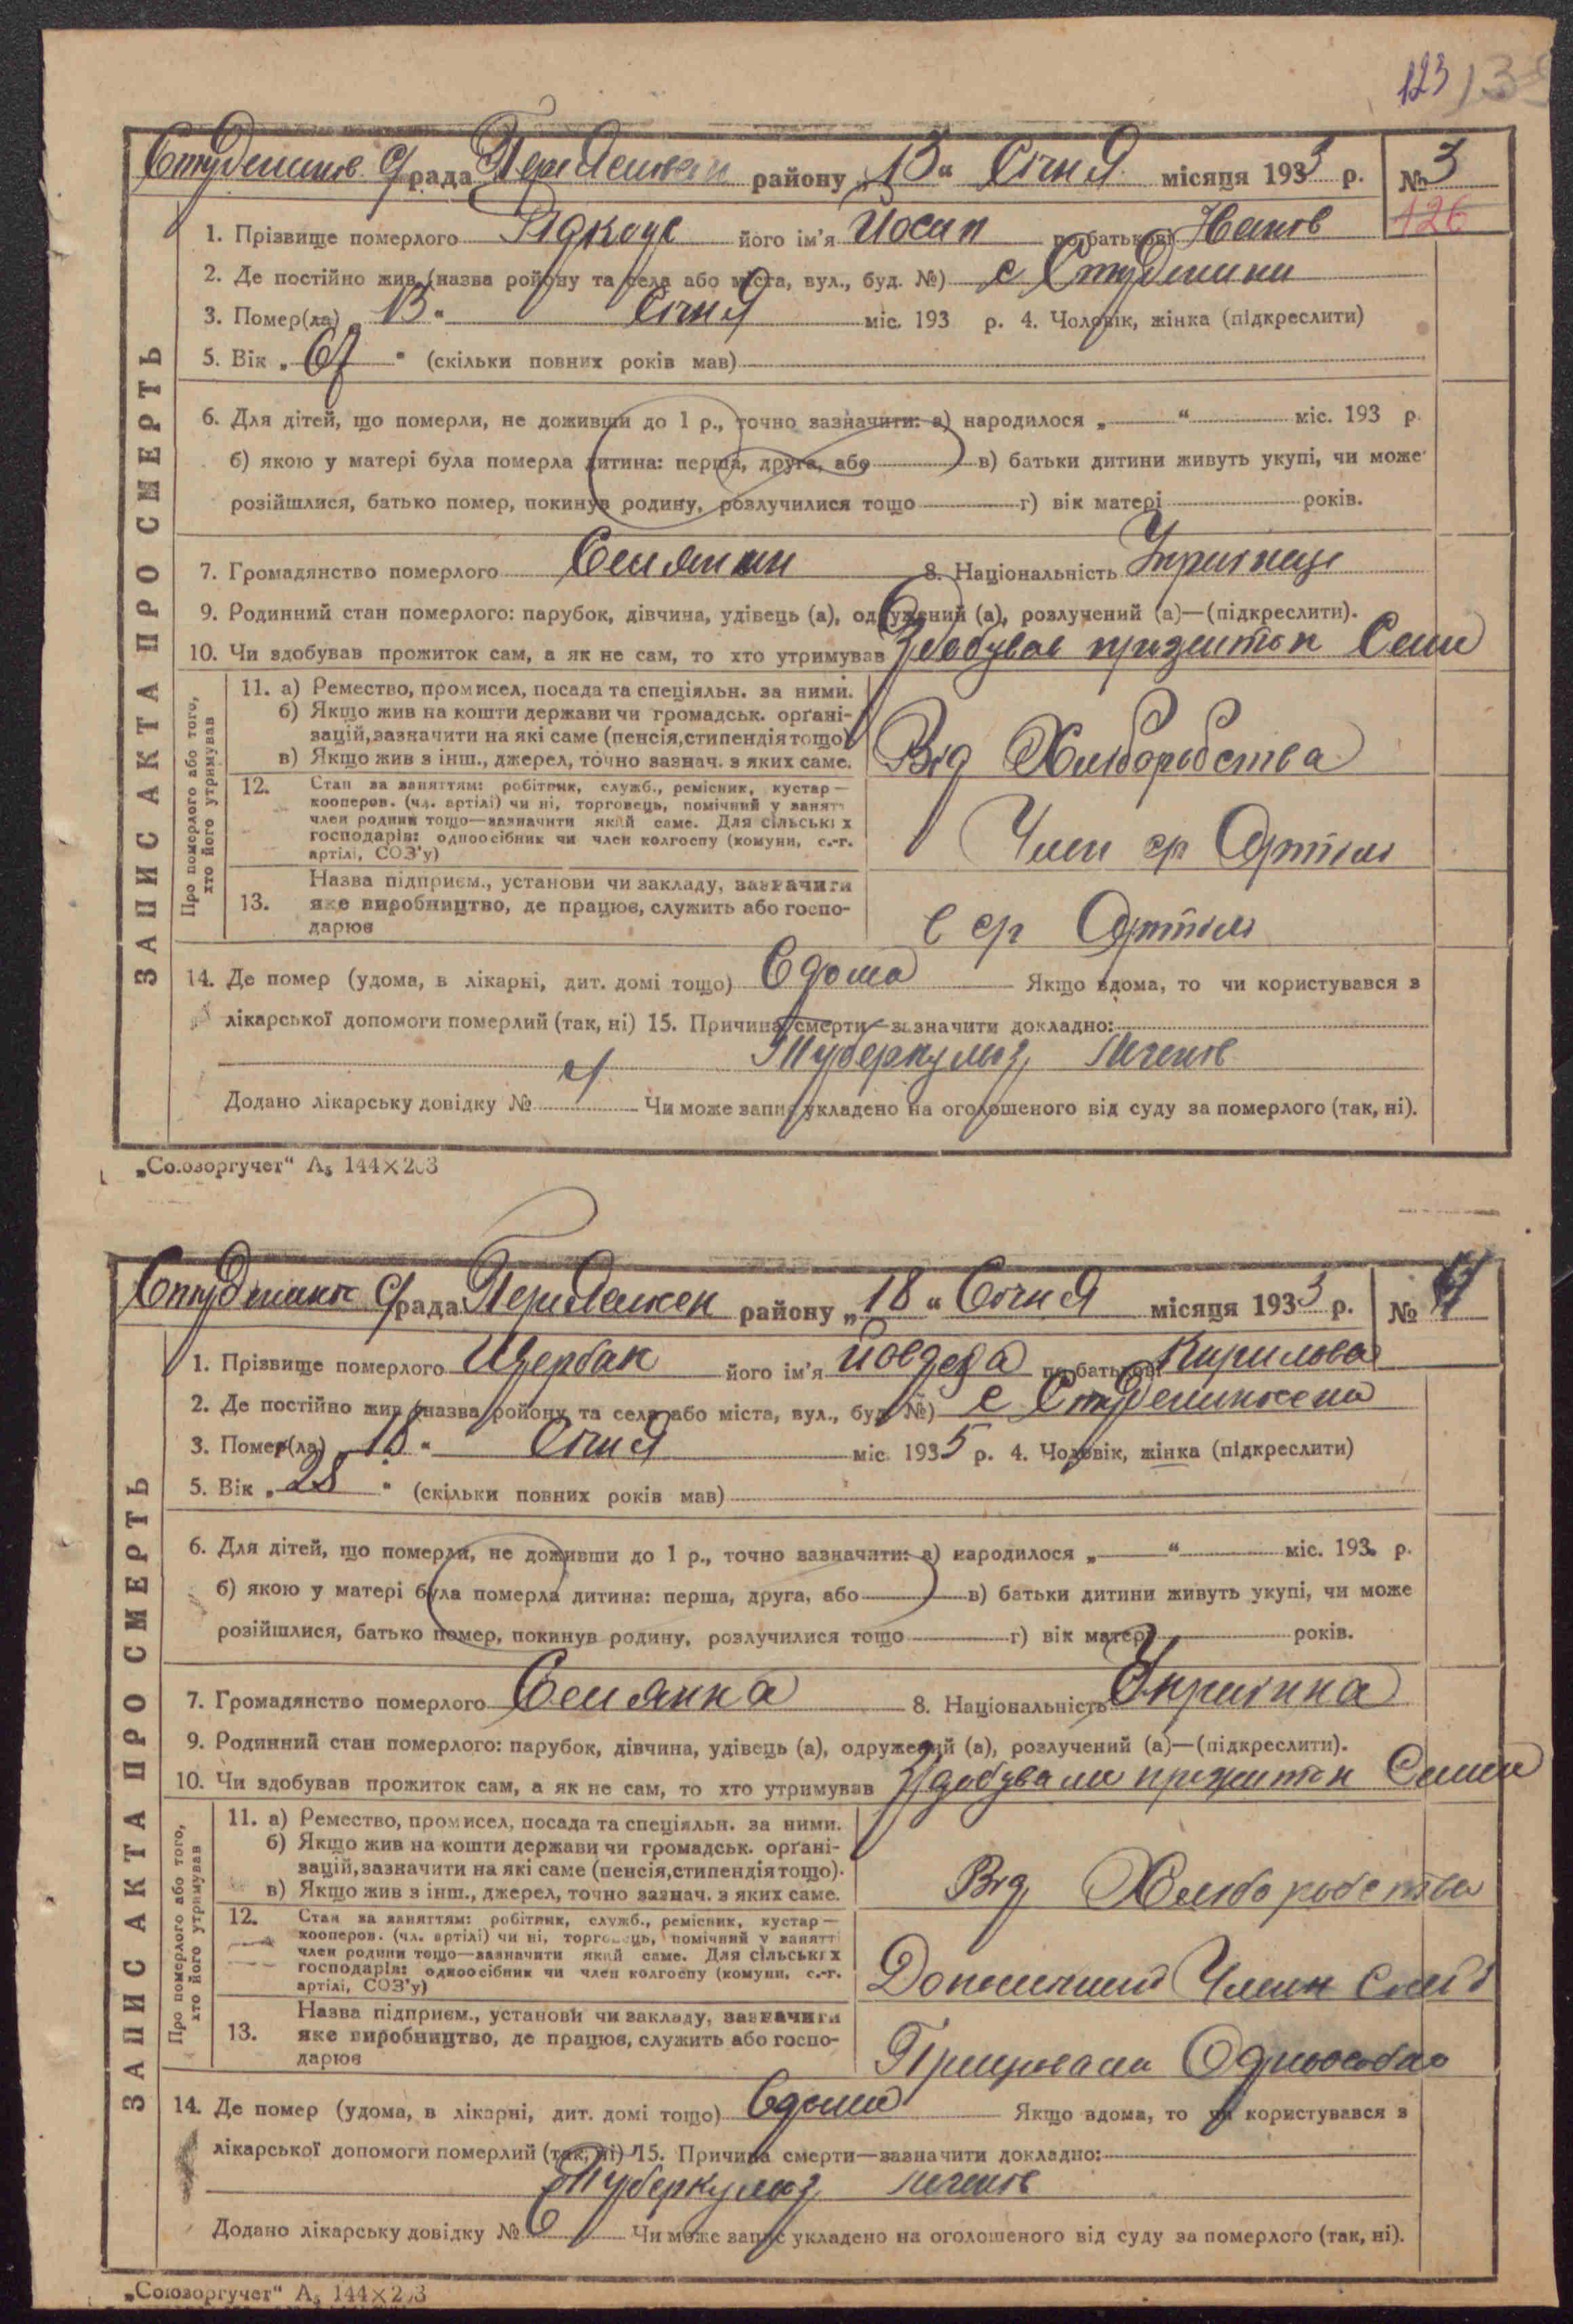 123
Студеник С/рада Переяслав району „13“ Січня місяця 1933 р. № 3
126
1. Прізвище померлого його ім'я Йосип по батькові Іванов
2. Де постійно жив (назва ройону та села або міста, вул., буд. №) с Студеники
3. Помер(ла) „13“ Січня міс. 193 р. 4. Чоловік, жінка (підкреслити)
5. Вік „67“ (скільки повних років мав)
6. Для дітей, що померли, не доживши до 1 р., точно зазначити: а) народилося „ “ міс. 193 р.
б) якою у матері була померла дитина: перша, друга, або в) батьки дитини живуть укупі, чи може
розійшлися, батько помер, покинув родину, розлучилися тощо г) вік матері років.
7. Громадянство померлого Селянин 8. Національність Українець
9. Родинний стан померлого: парубок, дівчина, удівець (а), одружений (а), розлучений (а)—(підкреслити).
10. Чи здобував прожиток сам, а як не сам, то хто утримував Здобував прожиток Сам
11. а) Ремество, промисел, посада та спеціяльн. за ними.
б) Якщо жив на кошти держави чи громадськ. орґані-
зацій, зазначити на які саме (пенсія, стипендія тощо)
в) Якщо жив з інш., джерел, точно зазнач. з яких саме.
Від Хліборобства
12. Стан за заняттям: робітник, служб., ремісник, кустар—
кооперов. (чл. артілі) чи ні, торговець, помічний у занятт
член родини тощо—зазначити який саме. Для сільських
господарів: одноосібник чи член колгоспу (комуни, с.-г.
артілі, СОЗ'у)
Член ср Артілі
13. Назва підприєм., установи чи закладу, зазначити
яке виробництво, де працює, служить або госпо-
дарює
в ср Артілі
14. Де помер (удома, в лікарні, дит. домі тощо) Вдома Якщо вдома, то чи користувався з
лікарської допомоги померлий (так, ні) 15. Причина смерти—зазначити докладно:
Туберкульоз легенів
Додано лікарську довідку № Чи може запис укладено на оголошеного від суду за померлого (так, ні).
ЗАПИС АКТА ПРО СМЕРТЬ
Про померлого або того,
хто його утримував
„Союзоргучет“ А₅ 144×203
Студеник С/рада Переяслав району „18“ Січня місяця 1933 р. № 4
1. Прізвище померлого Щербак його ім'я по батькові Кирилова
2. Де постійно жив (назва ройону та села або міста, вул., буд. №) с
3. Помер(ла) „18“ Січня міс. 1935 р. 4. Чоловік, жінка (підкреслити)
5. Вік „28“ (скільки повних років мав)
6. Для дітей, що померли, не доживши до 1 р., точно зазначити: а) народилося „ “ міс. 193 р.
б) якою у матері була померла дитина: перша, друга, або в) батьки дитини живуть укупі, чи може
розійшлися, батько помер, покинув родину, розлучилися тощо г) вік матері років.
7. Громадянство померлого Селянка 8. Національність Українка
9. Родинний стан померлого: парубок, дівчина, удівець (а), одружений (а), розлучений (а)—(підкреслити).
10. Чи здобував прожиток сам, а як не сам, то хто утримував Здобувала прожиток Сама
11. а) Ремество, промисел, посада та спеціяльн. за ними.
б) Якщо жив на кошти держави чи громадськ. орґані-
зацій, зазначити на які саме (пенсія, стипендія тощо).
в) Якщо жив з інш., джерел, точно зазнач. з яких саме.
Від Хліборобства
12. Стан за заняттям: робітник, служб., ремісник, кустар—
кооперов. (чл. артілі) чи ні, торговець, помічний у занятті
член родини тощо—зазначити який саме. Для сільських
господарів: одноосібник чи член колгоспу (комуни, с.-г.
артілі, СОЗ'у)
Член
13. Назва підприєм., установи чи закладу, зазначити
яке виробництво, де працює, служить або госпо-
дарює
Працювала Одноосібно
14. Де помер (удома, в лікарні, дит. домі тощо) Вдома Якщо вдома, то чи користувався з
лікарської допомоги померлий (так, ні) 15. Причина смерти—зазначити докладно:
Туберкульоз легенів
Додано лікарську довідку № 6 Чи може запис укладено на оголошеного від суду за померлого (так, ні).
ЗАПИС АКТА ПРО СМЕРТЬ
Про померлого або того,
хто його утримував
„Союзоргучет“ А₅ 144×203